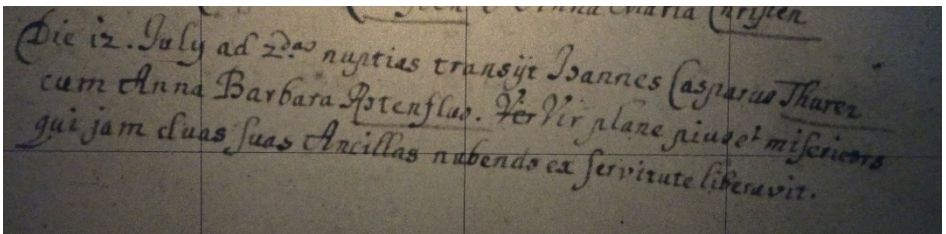 Anna Maria Christen
Die 12. July ad 2das nuptias transijt Joannes Casparus Thurer
cum Anna Barbara Rstenfluo. Ver Vir plane pius et misericors
qui jam duas suas Ancillas nubendo ex servitute liberavit.